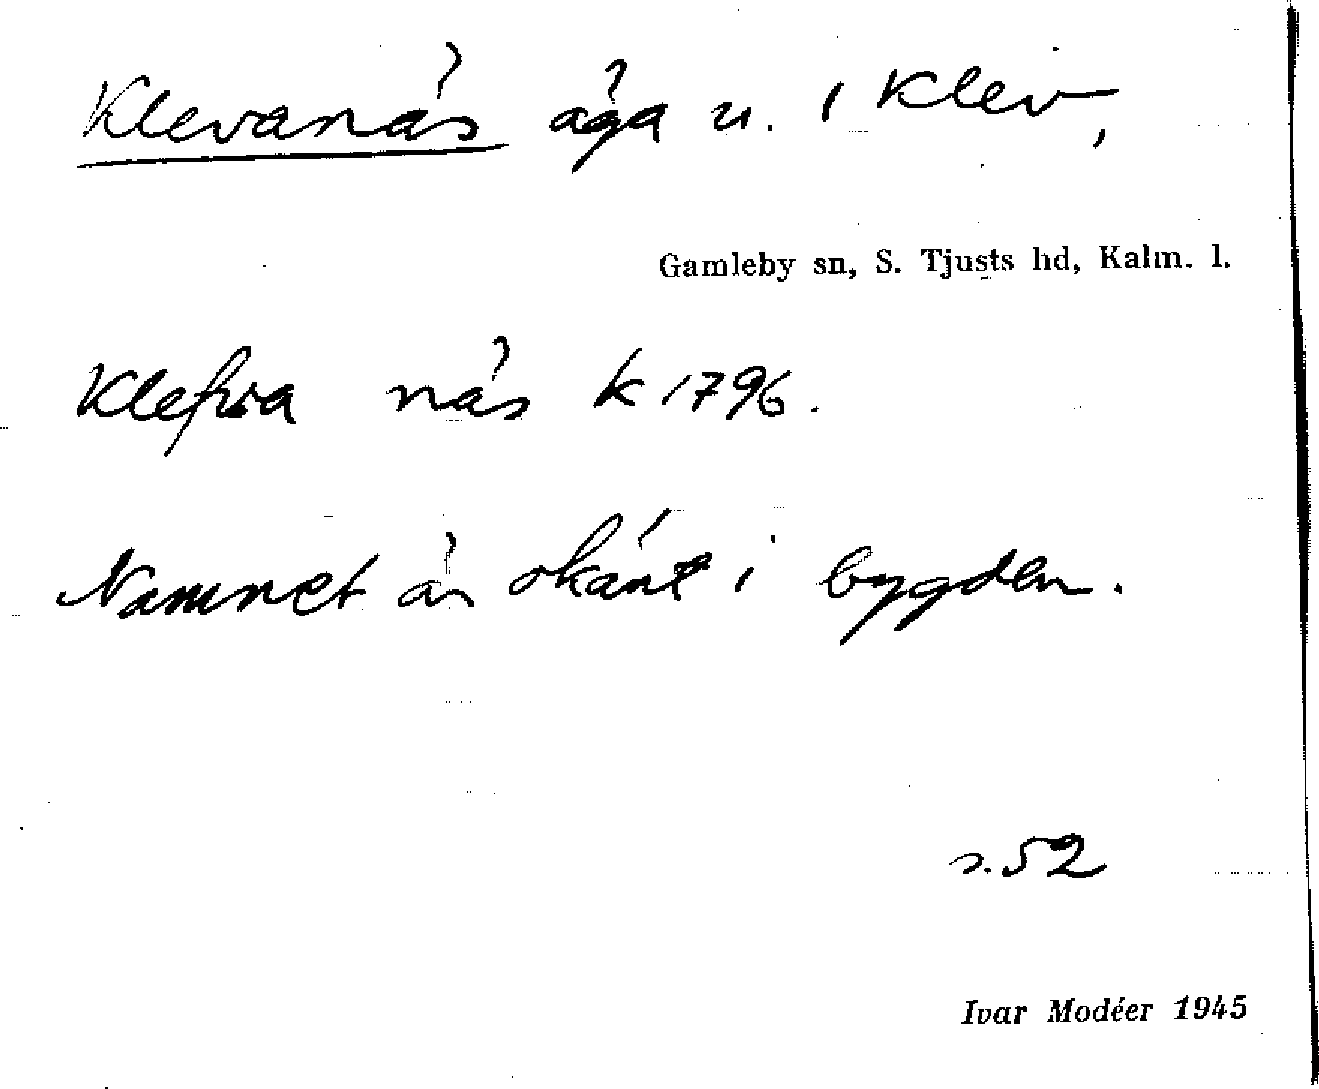 Klevanäs äga u. 1 Klev,
Gamleby sn, S. Tjusts hd, Kalm. l.
Klefva näs k 1796.
Namnet är okänt i bygden.
s. 52
Ivar Modéer 1945